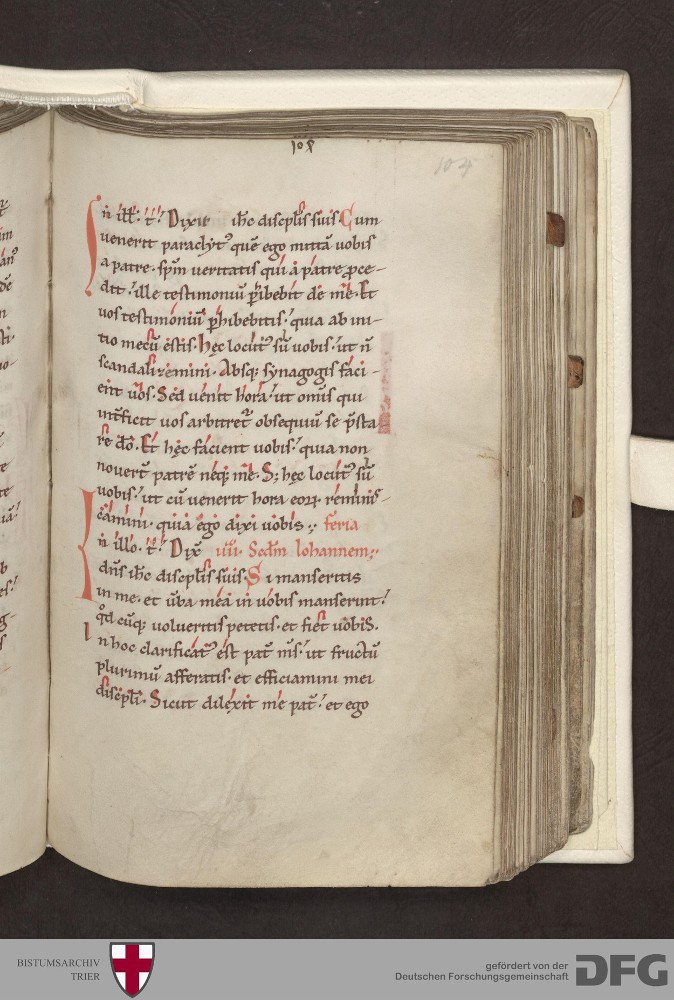 108
104
In illo t̄. Dixit ih̄c discipl̄is suis. Cum
venerit paraclyt᷒ quē ego mittā vobis
a patre. sp̄m veritatis qui a patre proce-
dit. ille testimoniū phibebit de me. Et
vos testimoniū phibebitis. quia ab ini-
tio mecū estis. Hęc locut᷒ sū vobis. ut n̄
scandalizemini. Absq; synagogis faci-
ent vos. Sed venit hora. ut omīs qui
int̄ficit vos arbitret̄ obsequiū se p̄sta
re dō. Et hęc facient vobis. quia non
novert̄ patrē neq; me. S; hęc locut᷒ sū
vobis. ut cū venerit hora eorꝝ remini-
scamini. quia ego dixi vobis. feria
In illo. t̄. Dix̄ iiii. Scdm Iohannem.
dn̄s ih̄c discipl̄is suis. Si manseritis
in me. et v̄ba mea in vobis manserint.
qd̄ cūq; volueritis petetis. et fiet vobis.
In hoc clarificat᷒ est pat̄ m̄s. ut fructū
plurimū afferatis. et efficiamini mei
discipl̄i. Sicut dilexit me pat̄. et ego
BISTUMSARCHIV
TRIER
gefördert von der
Deutschen Forschungsgemeinschaft
DFG